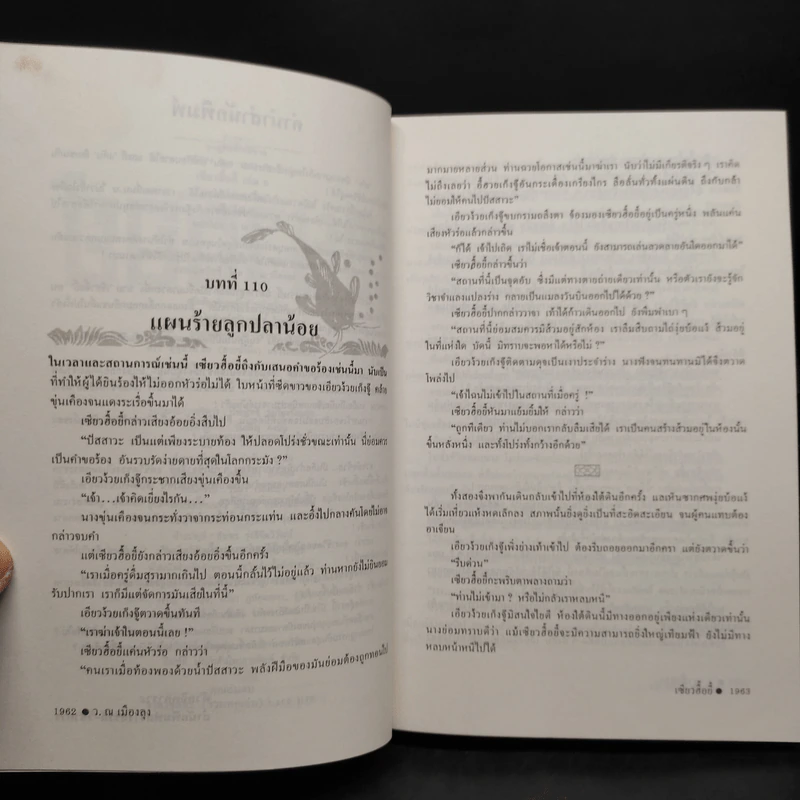 บทที่ 110
แผนร้ายลูกปลาน้อย
ในเวลาและสถานการณ์เช่นนี้ เซียวฮื้อยี้ถึงกับเสนอคำขอร้องเช่นนี้มา นับเป็น
ที่ทำให้ผู้ได้ยินร้องไห้ไม่ออกหัวร่อไม่ได้ ใบหน้าที่ซีดขาวของเอียวง้วยเก็งจู้
ขุ่นเคืองจนแดงระเรื่อขึ้นมาได้
เซียวฮื้อยี้กล่าวเสียงอ้อยอิ่งสืบไป
“ปัสสาวะ เป็นแต่เพียงระบายท้อง ให้ปลอดโปร่งชั่วขณะเท่านั้น นี่ย่อม
เป็นคำขอร้อง อันรวบรัดง่ายดายที่สุดในโลกกระมัง ?”
เอียวง้วยเก็งจู้กระชากเสียงขุ่นเคืองขึ้น
“เจ้า...เจ้าคิดเยี่ยงไรกัน...”
นางขุ่นเคืองจนกระทั่งวาจากระท่อนกระแท่น และอึ้งไปกลางคันโดยไม่อาจ
กล่าวจบคำ
แต่เซียวฮื้อยี้ยังกล่าวเสียงอ้อยอิ่งขึ้นอีกครั้ง
“เราเมื่อครู่ดื่มสุรามากเกินไป ตอนนี้กลั้นไว้ไม่อยู่แล้ว ท่านหากยังไม่ยินยอม
รับปากเรา เราก็มีแต่จัดการมันเสียในที่นี้”
เอียวง้วยเก็งจู้ตวาดขึ้นทันที
“เราฆ่าเจ้าในตอนนี้เลย !”
เซียวฮื้อยี้แค่นหัวร่อ กล่าวว่า
“คนเราเมื่อท้องพองด้วยน้ำปัสสาวะ พลังฝีมือของมันย่อมต้องถูกทอนไป
1962 ● ว. ณ เมืองลุง
มากมายหลายส่วน ท่านฉวยโอกาสเช่นนี้มาฆ่าเรา นับว่าไม่มีเกียรติจริง ๆ เราคิด
ไม่ถึงเลยว่า อี้ฮวยเก็งจู้อันกระเดื่องเกรียงไกร ลือลั่นทั่วทั้งแผ่นดิน ถึงกับกล้า
ไม่ยอมให้คนไปปัสสาวะ”
เอียวง้วยเก็งจู้ขบกรามถลึงตา จ้องมองเซียวฮื้อยี้อยู่เป็นครู่หนึ่ง พลันแค่น
เสียงหัวร่อแล้วกล่าวขึ้น
“ก็ได้ เจ้าไปเถิด เราไม่เชื่อเจ้าตอนนี้ ยังสามารถเล่นลวดลายอันใดออกมาได้”
เซียวฮื้อยี้กล่าวขึ้นว่า
“สถานที่นี้เป็นจุดอับ ซึ่งมีแต่ทางตายถ่ายเดียวเท่านั้น หรือตัวเรายังจะรู้จัก
วิชาจำแลงแปลงร่าง กลายเป็นแมลงวันบินออกไปได้ด้วย ?”
เซียวฮื้อยี้ปากกล่าววาจา เท้าได้ก้าวเดินออกไป ยังพึมพำเบา ๆ
“สถานที่นี้ย่อมสมควรมีส้วมอยู่สักห้อง เราลืมสืบถามไถ่งุ่ยบ้อแง้ ส้วมอยู่
ในที่แห่งใด บัดนี้ มิทราบจะพอหาได้พบหรือไม่ ?”
เอียวง้วยเก็งจู้ติดตามดุจเป็นเงาประจำร่าง นางฟังจนทนทานมิได้จึงตวาด
โพล่งไป
“เจ้าไฉนไม่เข้าไปในสถานที่เมื่อครู่ !”
เซียวฮื้อยี้หันมาแย้มยิ้มให้ กล่าวว่า
“ถูกทีเดียว ท่านไม่บอกเรากลับลืมเสียได้ เราเป็นคนสร้างส้วมอยู่ในห้องนั้น
ขึ้นหลังหนึ่ง และทั้งโปร่งทั้งกว้างอีกด้วย”
ทั้งสองจึงพากันเดินกลับเข้าไปที่ห้องใต้ดินอีกครั้ง และเห็นซากศพงุ่ยบ้อแง้
ได้เริ่มเหี่ยวแห้งหดเล็กลง สภาพนั้นยิ่งดูยิ่งเป็นที่สะอิดสะเอียน จนผู้คนแทบต้อง
อาเจียน
เอียวง้วยเก็งจู้เพิ่งย่างเท้าเข้าไป ต้องรีบถอยออกมาอีกครา แต่ยังตวาดขึ้นว่า
“รีบด่วน”
เซียวฮื้อยี้กะพริบตาพลางถามว่า
“ท่านไม่เข้ามา ? หรือไม่กลัวเราหลบหนี”
เอียวง้วยเก็งจู้มีสนใจไยดี ห้องใต้ดินนี้มีทางออกอยู่เพียงแห่งเดียวเท่านั้น
นางย่อมทราบดีว่า แม้เซียวฮื้อยี้จะมีความสามารถยิ่งใหญ่เทียมฟ้า ยังไม่มีทาง
หลบหน้าหนีไปได้
เซียวฮื้อยี้ ● 1963